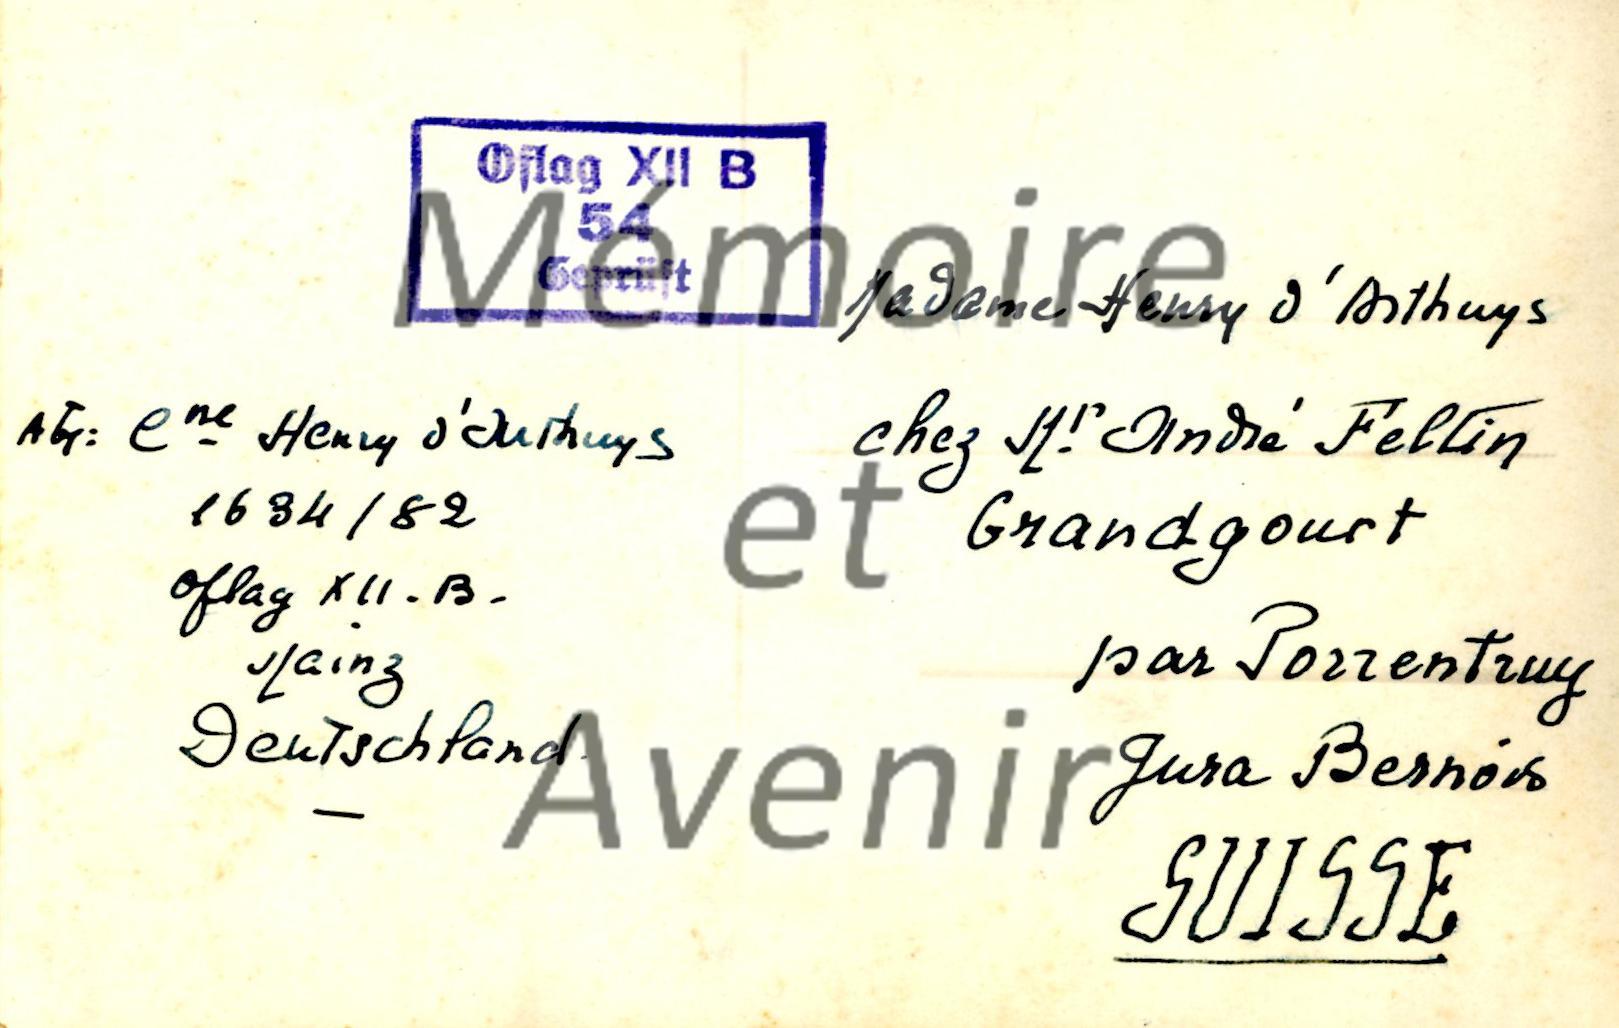 Oflag XII B
54
Geprüft
Mémoire
et
Avenir
Abs: Cne Henry d'Arthuys
1634/82
Oflag XII.B.
Mainz
Deutschland
Madame Henry d'Arthuys
chez Mr André Feltin
Grandgourt
par Porrentruy
Jura Bernois
SUISSE